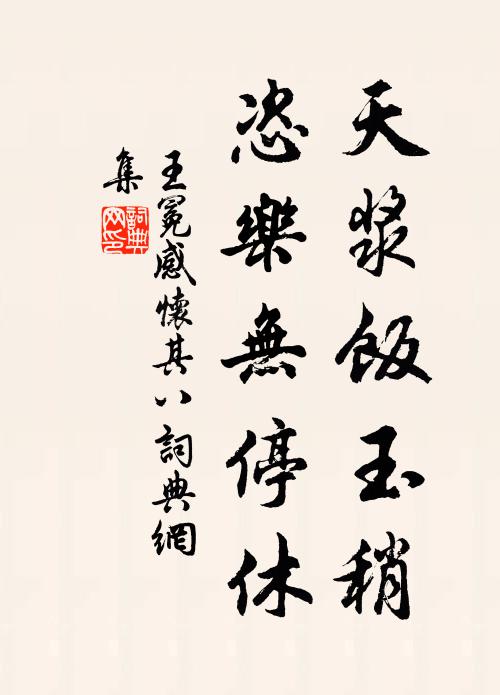 天漿飯玉稍
恣樂無停休
王冕感懷其八 詞典網
集
詞典
网印